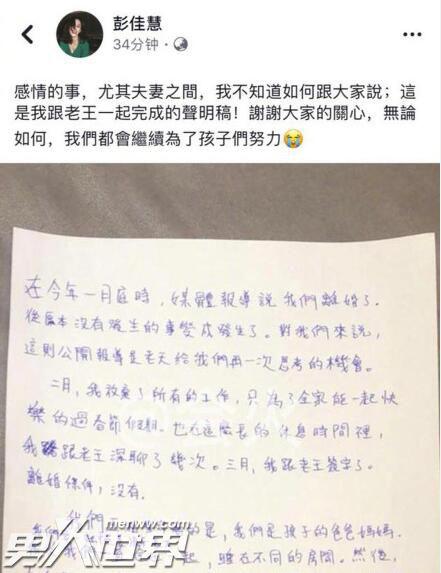 彭佳慧
34分钟
感情的事，尤其夫妻之間，我不知道如何跟大家說；這
是我跟老王一起完成的聲明稿！謝謝大家的關心，無論
如何，我們都會繼續為了孩子們努力😭
在今年一月底時，媒體報導說我們離婚了。
從原本沒有發生的事變成發生了。對我們來說，
這則公開報導是老天給我們再一次思考的機會。
二月，我放棄了所有的工作，只為了全家能一起快
樂的過春節假期。也在這麼長的休息時間裡，
我跟老王深聊了幾次。三月，我跟老王簽字了。
離婚條件，沒有.
我們
的是，我們是孩子的爸爸媽媽.
我們
起，睡在不同的房間。然後，
男人世界
menww.com